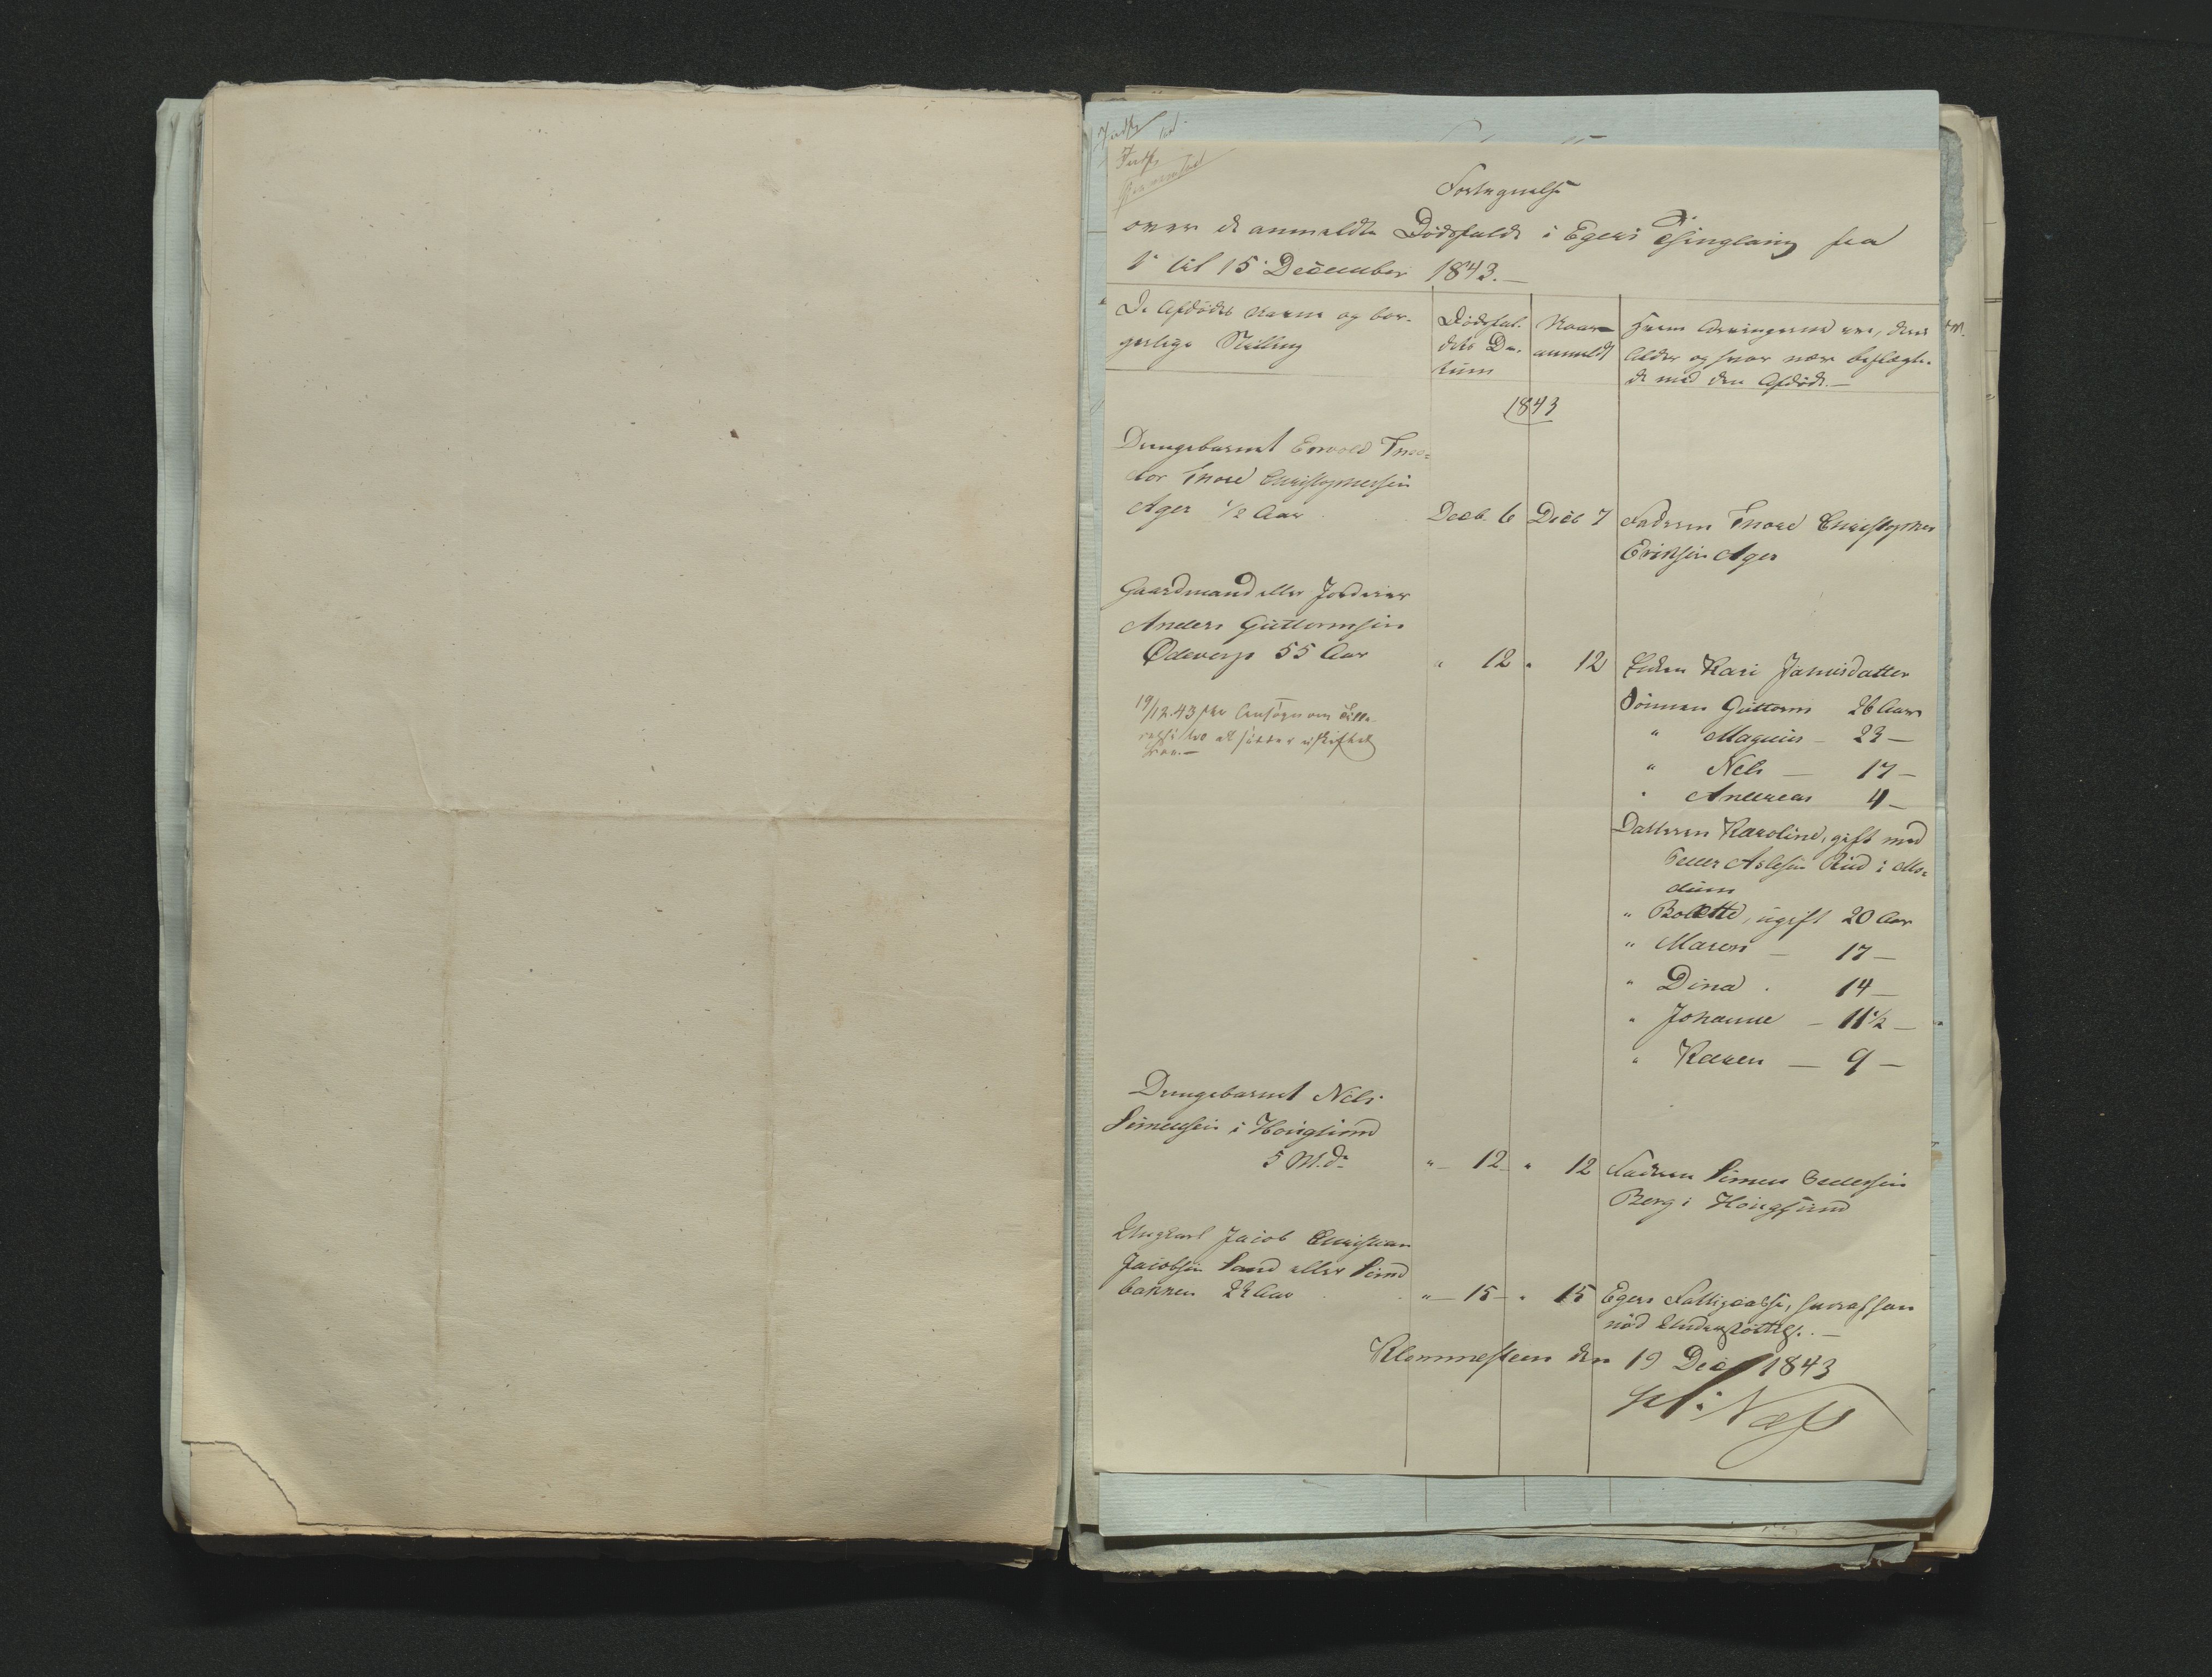 Fortegnelse
over de anmeldte Dødsfalde i Egers Thinglaug fra
1 til 15 December 1843.—
De Afdødes Navne og bor-
gerlige Stilling
Dødsfal-
dets Da-
tum
Naar
anmeldt
Hvem Arvingerne ere, deres
Alder og hvor nær beslægte-
de med den Afdøde.—
1843
Drengebarnet
Thore Christophersen
Ager 1/2 Aar
Decb. 6
Decb 7
Faderen Thore Christopher
Eriksen Ager
Gaardmand eller Jordeier
Anders Guttormsen
Ødeverp 55 Aar
" 12
" 12
Enken Kari Jamisdatter
Sønnen Guttorm 26 Aar
" Magnus — 23 —
" Nels — 17 —
" Andreas 4 —
19/12.43
at sidder i uskiftet
Boe.—
Datteren Karoline, gift med
Peder Aslesen Rud i Mo-
dum
" Bolette, ugift 20 Aar
" Maren — 17 —
" Dina . 14 —
" Johanne — 11 1/2 —
" Karen — 9 —
Drengebarnet Nels
Simensen i Hougsund
5 Md:
" 12
" 12
Faderen Simen Pedersen
Berg i Hougsund
Ungkarl Jacob Christian
Jacobsen Sand eller Sand
bakken 22 Aar
" — 15 —
" 15
Egers Fattigcasse, hvoraf han
nød Understøttelse.—
Klommesteen den 19 Dec 1843